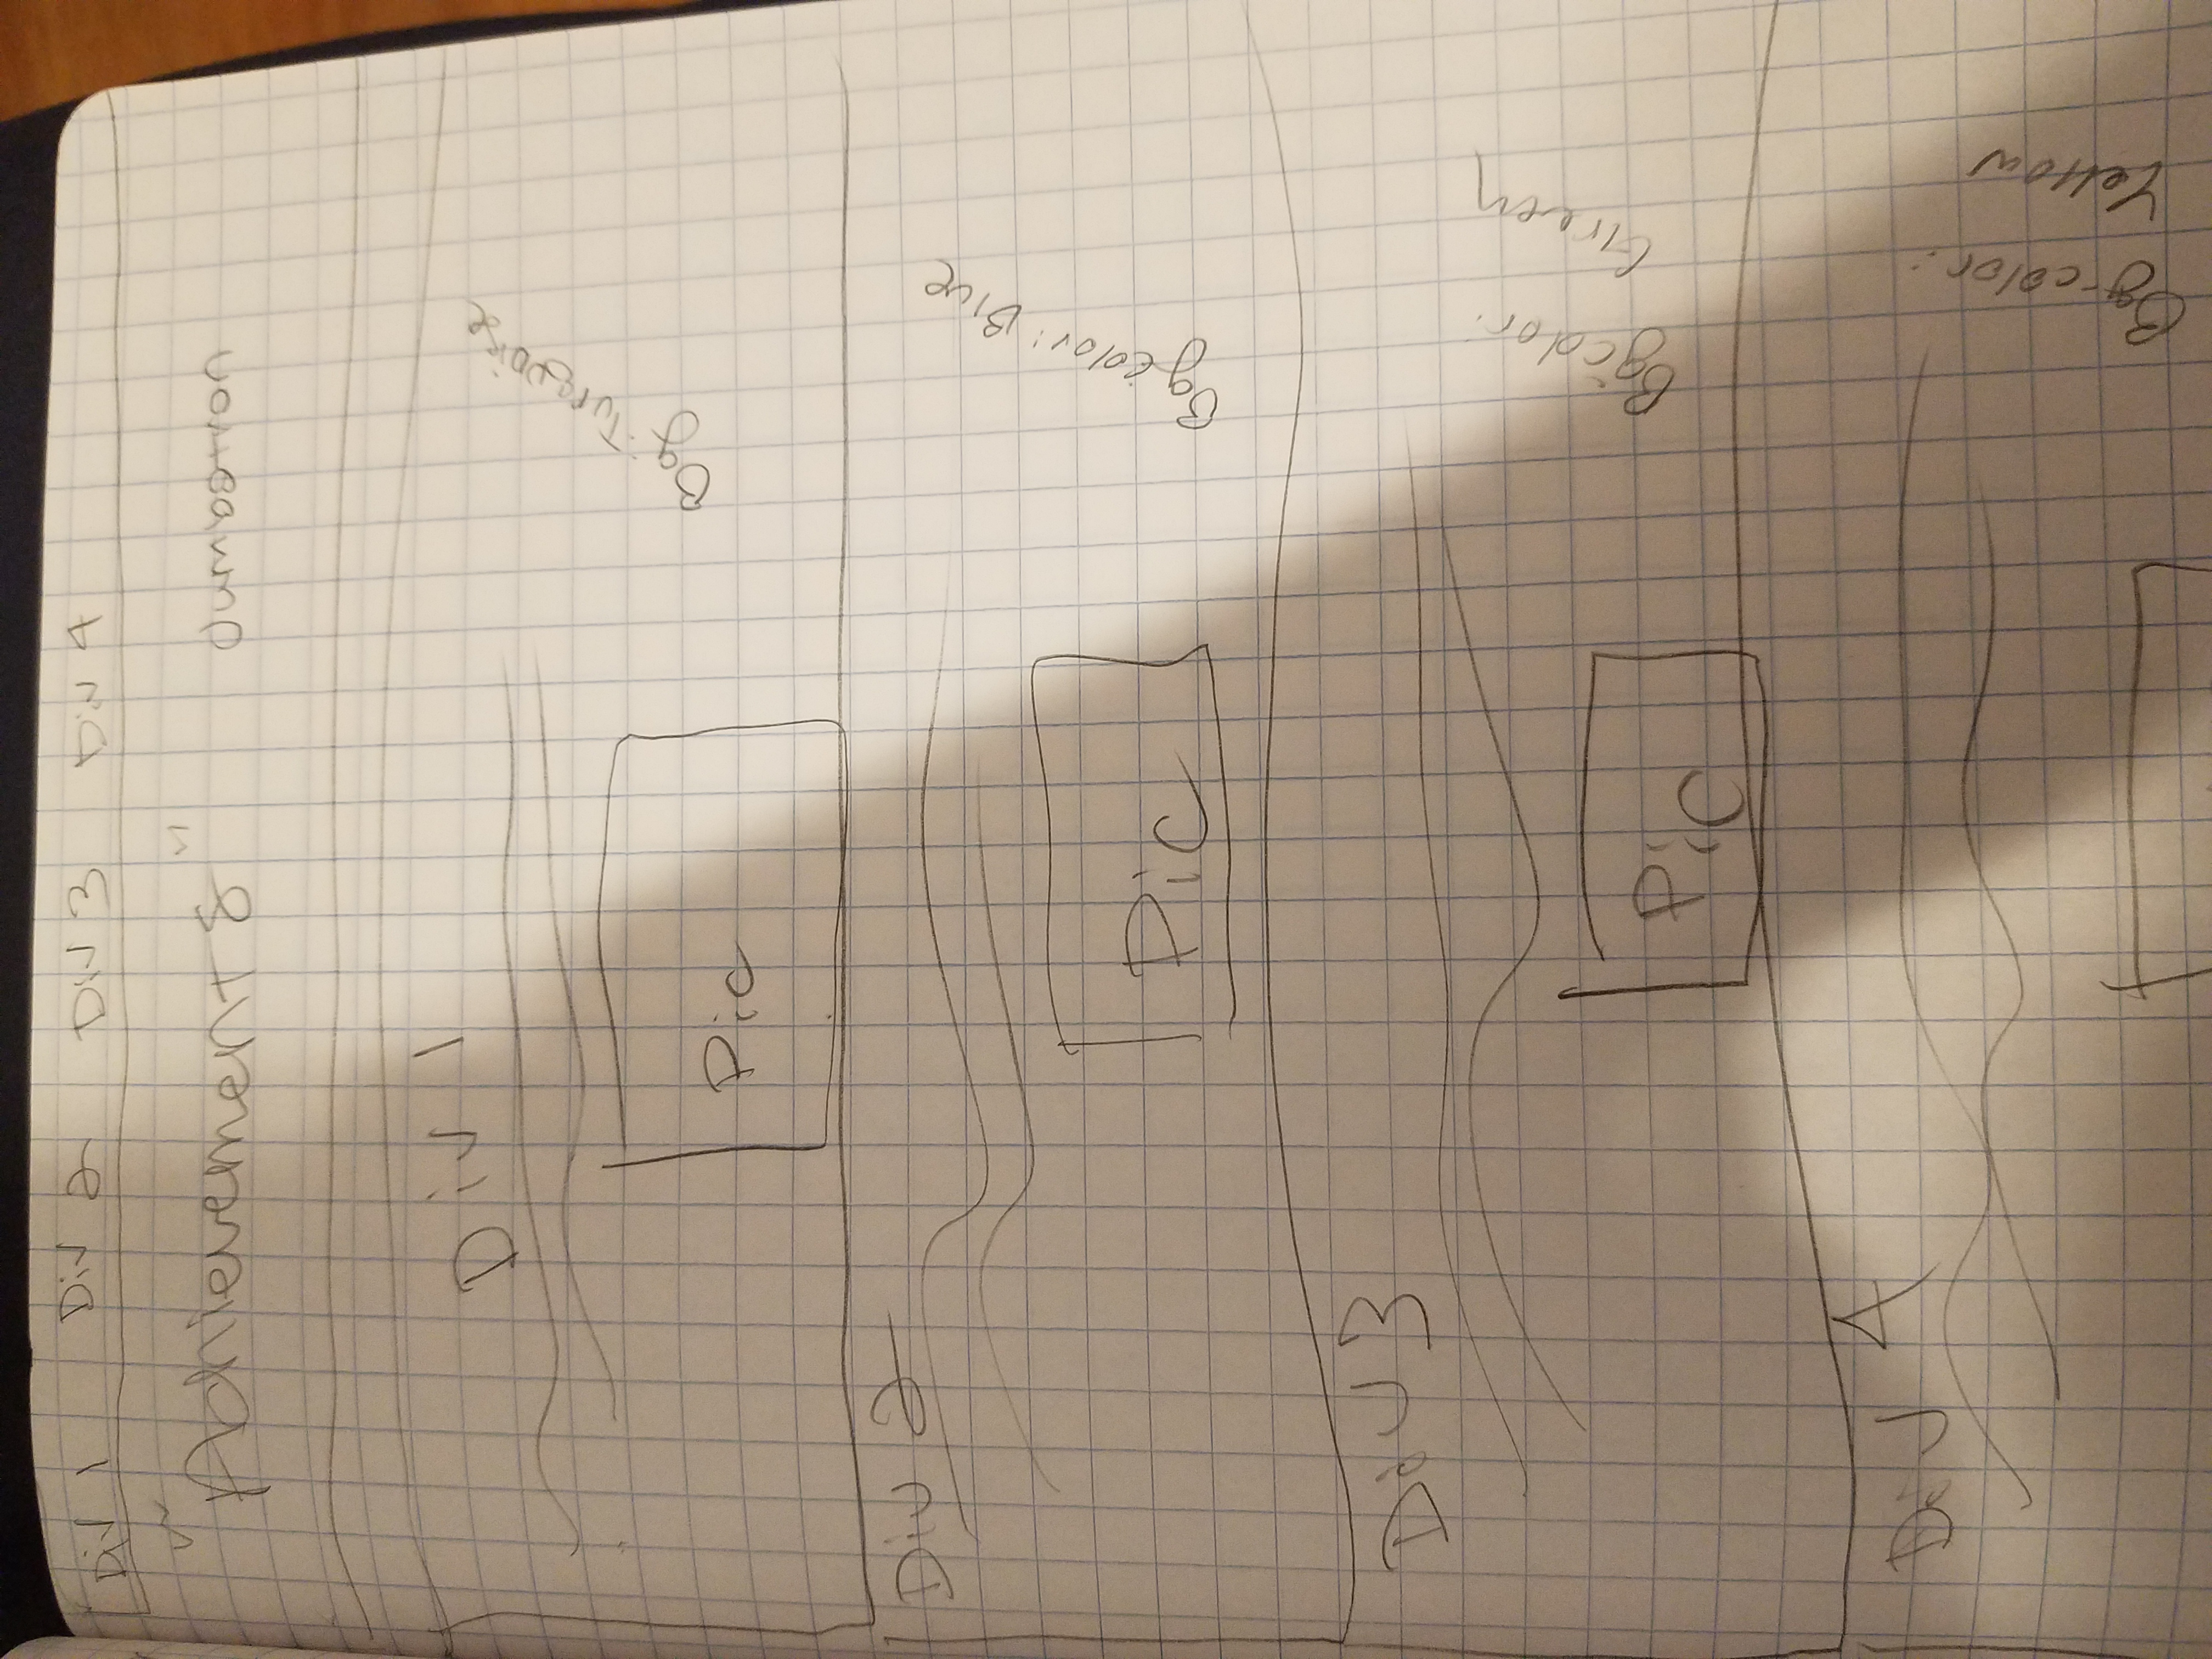 Div 1 Div 2 Div 3 Div 4
"Achievements" Jumbotron
Div 1
Bg: Turquoise
Pic
Div 2
Bgcolor: Blue
Pic
Div 3
Bgcolor:
Green
Pic
Div 4
Bg-color:
Yellow